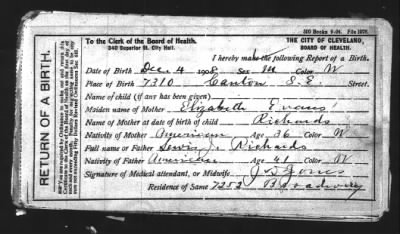 300 Books 9-04. File 1078.
To the Clerk of the Board of Health.
THE CITY OF CLEVELAND,
240 Superior St. City Hall.
BOARD OF HEALTH.
I hereby make the following Report of a Birth.
Date of Birth Dec. 4 1908 Sex M Color W
Place of Birth 7310 Canton S.E. Street.
Name of child (if it has been given)
Maiden name of Mother Elizabeth Evans
Name of Mother at date of birth of child Richards
Nativity of Mother American Age 36 Color W
Full name of Father Lewis J. Richards
Nativity of Father American Age 41 Color W
Signature of Medical attendant, or Midwife J S Jones
Residence of Same 7252 Broadway
RETURN OF A BIRTH.